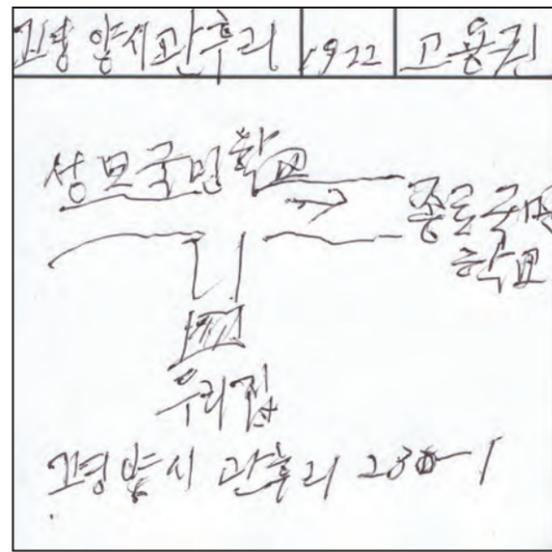 평양시 관후리 1922 고용권
성모국민학교
종로국민
학교
우리집
평양시 관후리 230-1